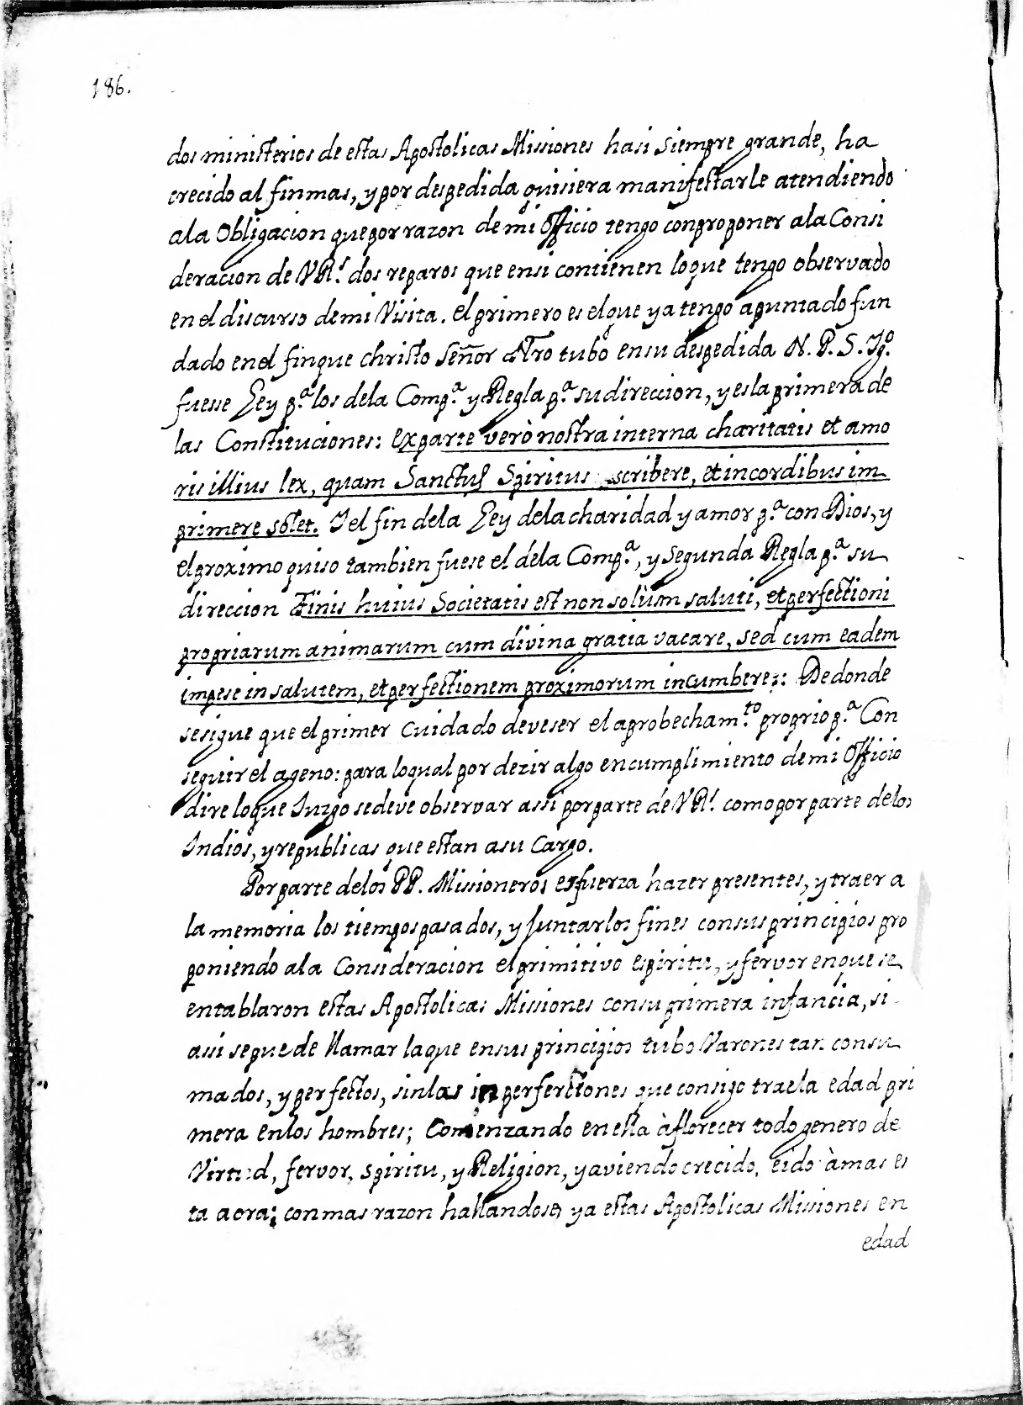 186.
dos ministerios de estas Apostolicas Missiones hasi siempre grande, ha
crecido al fin mas, y por despedida quisiera manifestarle atendiendo
ala Obligacion que por razon de mi Officio tengo con proponer ala Consi
deracion de VRs dos reparos que ensi contienen loque tengo observado
en el discurso demi Visita. El primero es elque ya tengo apuntado fun
dado en el fin que christo Señor Nro tubo en su despedida N. P. S. Igo.
fuesse Ley pa. los dela Compa. y Regla pa. su direccion, y es la primera de
las Constituciones: Exparte verò nostra interna charitatis et amo
ris illius lex, quam Sanctus Spiritus scribere, et incordibus im
primere solet. I el fin dela Ley dela charidad y amor pa. con Dios, y
el proximo quiso tambien fuese el dela Compa., y Segunda Regla pa. su
direccion Finis huius Societatis est non solùm saluti, et perfectioni
propriarum animarum cum divina gratia vacare, sed cum eadem
impese in salutem, et perfectionem proximorum incumbere;: Dedonde
sesigue que el primer Cuidado deveser el aprobechamto. proprio pa. Con
seguir el ageno: para loqual por dezir algo en cumplimiento demi Officio
dire loque Juzgo sedeve observar assi por parte de VRs. como por parte delos
Indios, y republicas que estan asu Cargo.
Por parte delos PP. Missioneros esfuerza hazer presentes, y traer a
la memoria los tiempos pasados, y Juntar los fines consus principios pro
poniendo ala Consideracion el primitivo espiritu, y fervor enque se
entablaron estas Apostolicas Missiones consu primera infancia, si
assi sepuede llamar laque ensus principios tubo Varones tan consu
mados, y perfectos, sinlas imperfectiones que consigo trae la edad pri
mera enlos hombres; Comenzando en ella à florecer todo genero de
Virtud, fervor, spiritu, y Religion, y aviendo crecido, eido àmas es
ta aora; con mas razon hallandose ya estas Apostolicas Missiones en
edad